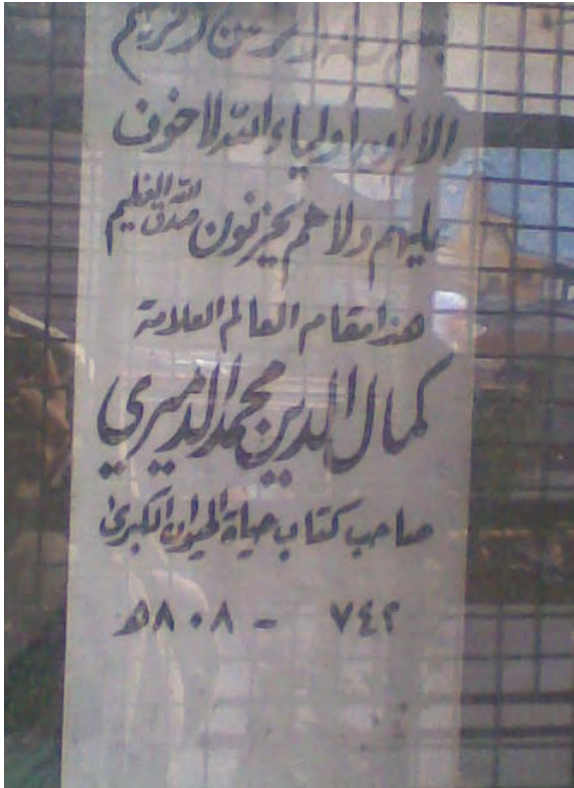 الا ان اولياء الله لا خوف
عليهم ولا هم يحزنون صدق الله العظيم
هذا مقام العالم العلامة
كمال الدين محمد الدميري
صاحب كتاب حياة الحيوان الكبرى
٧٤٢ - ٨٠٨هـ